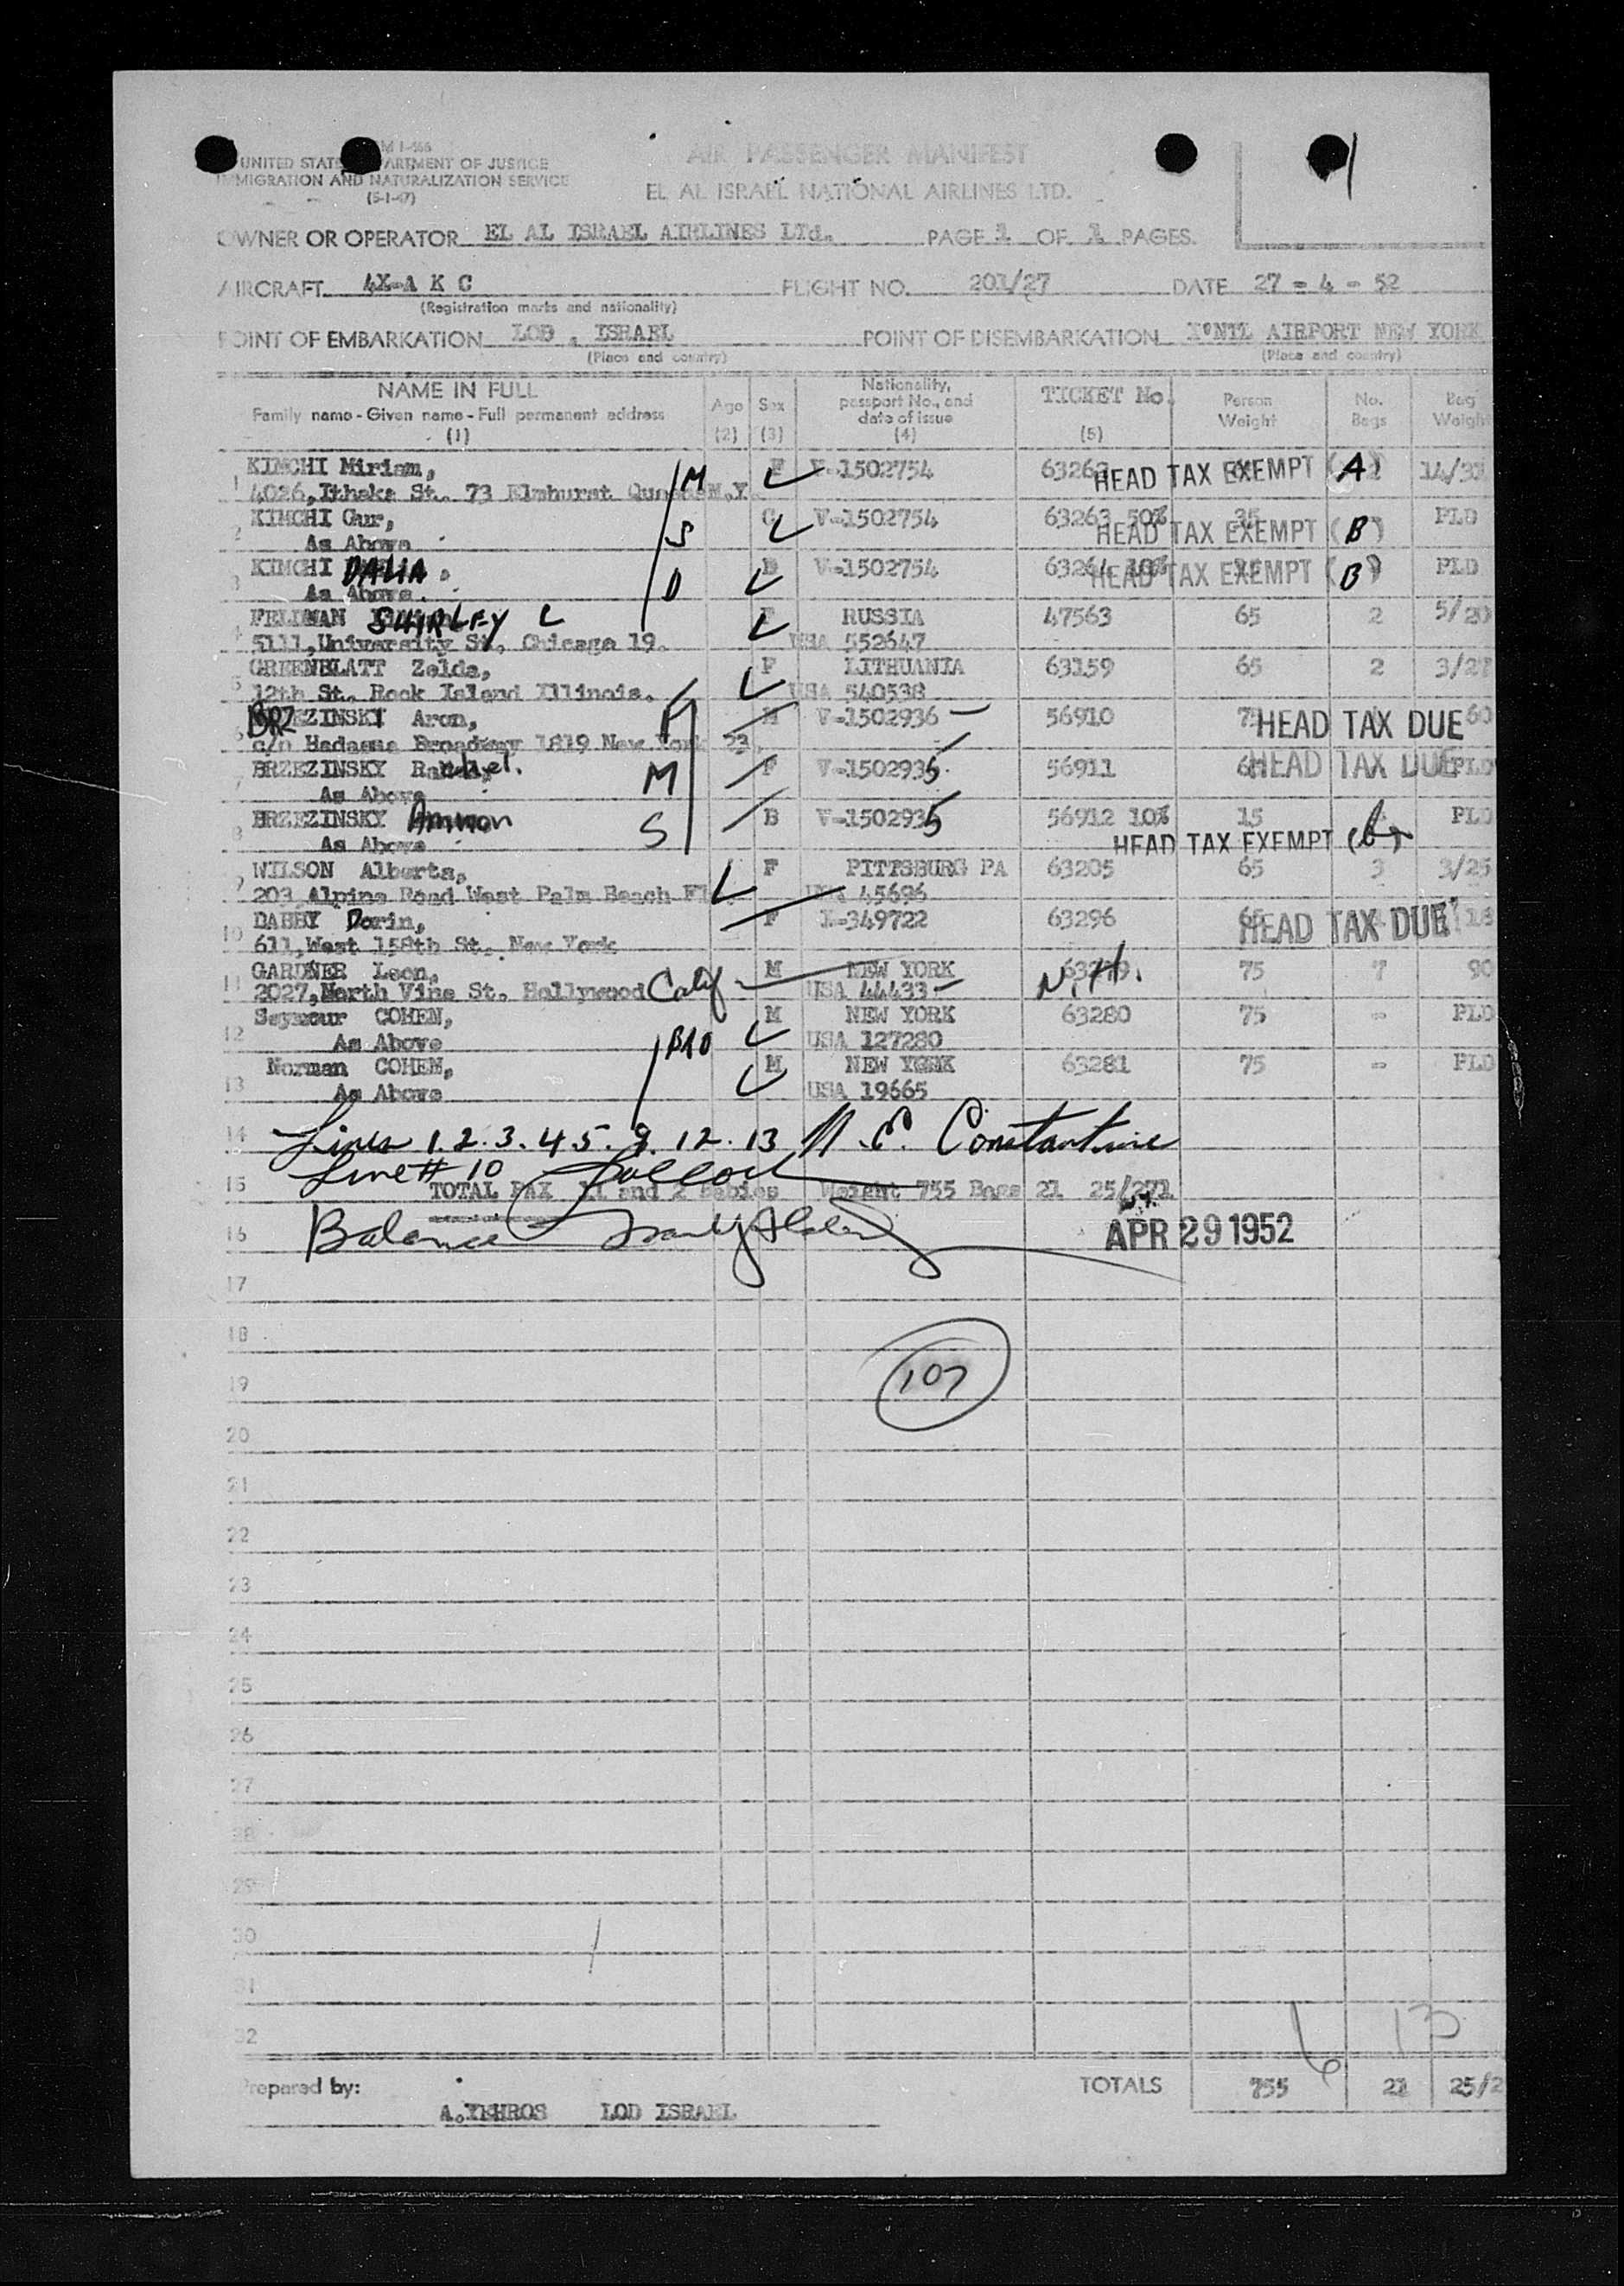 M I-466
UNITED STATES DEPARTMENT OF JUSTICE
IMMIGRATION AND NATURALIZATION SERVICE
(5-1-47)
AIR PASSENGER MANIFEST
EL AL ISRAEL NATIONAL AIRLINES LTD.
1
OWNER OR OPERATOR EL AL ISRAEL AIRLINES LTd. PAGE 1 OF 1 PAGES.
AIRCRAFT 4X-A K C FLIGHT NO. 201/27 DATE 27 - 4 - 52
(Registration marks and nationality)
POINT OF EMBARKATION LOD , ISRAEL POINT OF DISEMBARKATION I'NTL AIRPORT NEW YORK
(Place and country) (Place and country)
NAME IN FULL Age Sex Nationality, passport No., and date of issue TICKET No. Person Weight No. Bags Bag Weight
Family name - Given name - Full permanent address
(1) (2) (3) (4) (5)
1 KIMCHI Miriam, M F V-1502754 HEAD TAX EXEMPT (A) 14/31
4026, Ithaka St. 73 Elmhurst N.Y.
2 KIMCHI Gur, S G V-1502754 63263 50% HEAD TAX EXEMPT (B) PLD
As Above
3 KIMCHI DALIA D B V-1502754 63264 10% HEAD TAX EXEMPT (B) PLD
As Above.
4 FELDMAN SHIRLEY L F RUSSIA 47563 65 2 5/20
5111, University St, Chicago 19. USA 552647
5 GREENBLATT Zelda, F LITHUANIA 63159 65 2 3/27
12th St. Rock Island Illinois. USA 540538
6 BRZEZINSKY Aron, F M V-1502936 56910 HEAD TAX DUE 60
c/o Hadassa Broadway 1819 New York 23.
7 BRZEZINSKY Rachel. M F V-1502935 56911 HEAD TAX DUE PLD
As Above
8 BRZEZINSKY Amnon S B V-1502935 56912 10% 15 PLD
As Above HEAD TAX EXEMPT (b)
9 WILSON Alberta, F PITTSBURG PA 63205 65 3 3/25
203, Alpine Road West Palm Beach Fl 45696
10 DABBY Dorin, F I-349722 63296 65 HEAD TAX DUE 18
611, West 158th St. New York
11 GARDNER Leon, M NEW YORK N.H. 75 7 90
2027, North Vine St. Hollywood Calif USA 44433
12 Seymour COHEN, M NEW YORK 63280 75 - PLD
As Above BRO USA 127280
13 Norman COHEN, M NEW YORK 63281 75 - PLD
As Above USA 19665
14 Lines 1. 2. 3. 4. 5. 9. 12. 13 N. E. Constantine
Line # 10
15 TOTAL PAX 11 and 2 Babies Weight 755 Bags 21 25/271
16 Balance APR 29 1952
17
18
19 107
20
21
22
23
24
25
26
27
28
29
30
31
32
6 13
Prepared by: TOTALS 755 21 25/2
A.YEHROS LOD ISRAEL